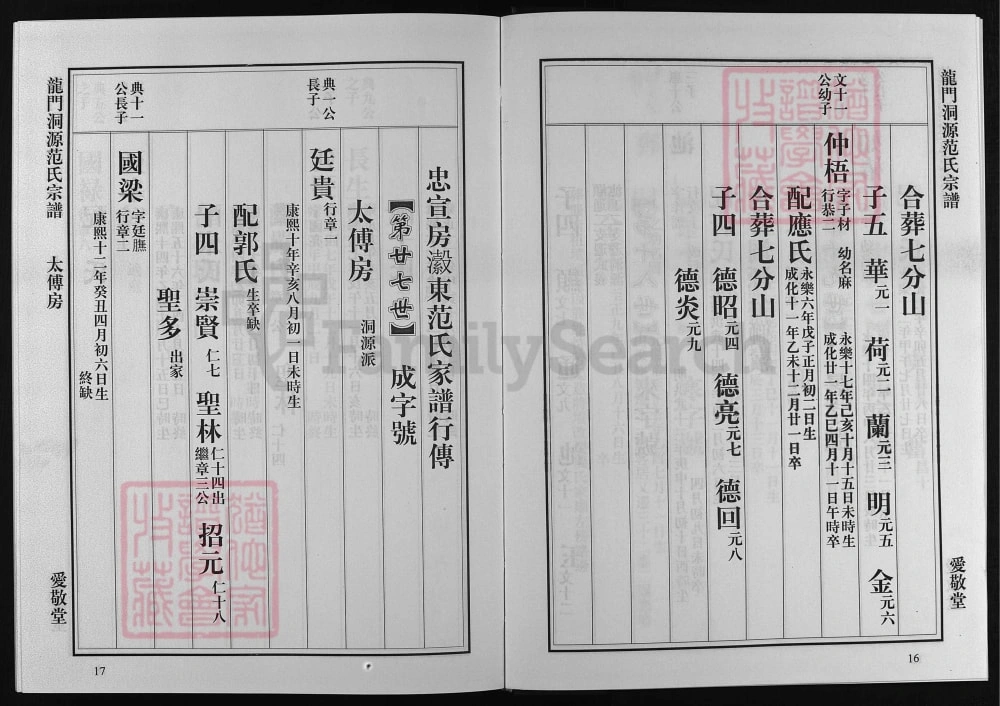 龍門洞源范氏宗譜
愛敬堂
16
合葬七分山
子五 華元一 荷元二 蘭元三 明元五 金元六
文十一公幼子
仲梧 字子材 幼名麻 永樂十七年己亥十月十五日未時生
行恭二 成化廿一年乙巳四月十一日午時卒
配應氏 永樂六年戊子正月初二日生
成化十一年乙未十二月廿一日卒
合葬七分山
子四 德昭元四 德亮元七 德回元八
德炎元九
忠宣房瀫東范氏家譜行傳
【第廿七世】 成字號
太傅房 洞源派
典一公長子
廷貴行章一
康熙十年辛亥八月初一日未時生
配郭氏生卒缺
子四 崇賢仁七 聖林仁十四出繼章三公 招元仁十八
聖多出家
典十一公長子
國梁 字廷膴
行章二
康熙十二年癸丑四月初六日生
終缺
龍門洞源范氏宗譜 太傅房
愛敬堂
17
FamilySearch